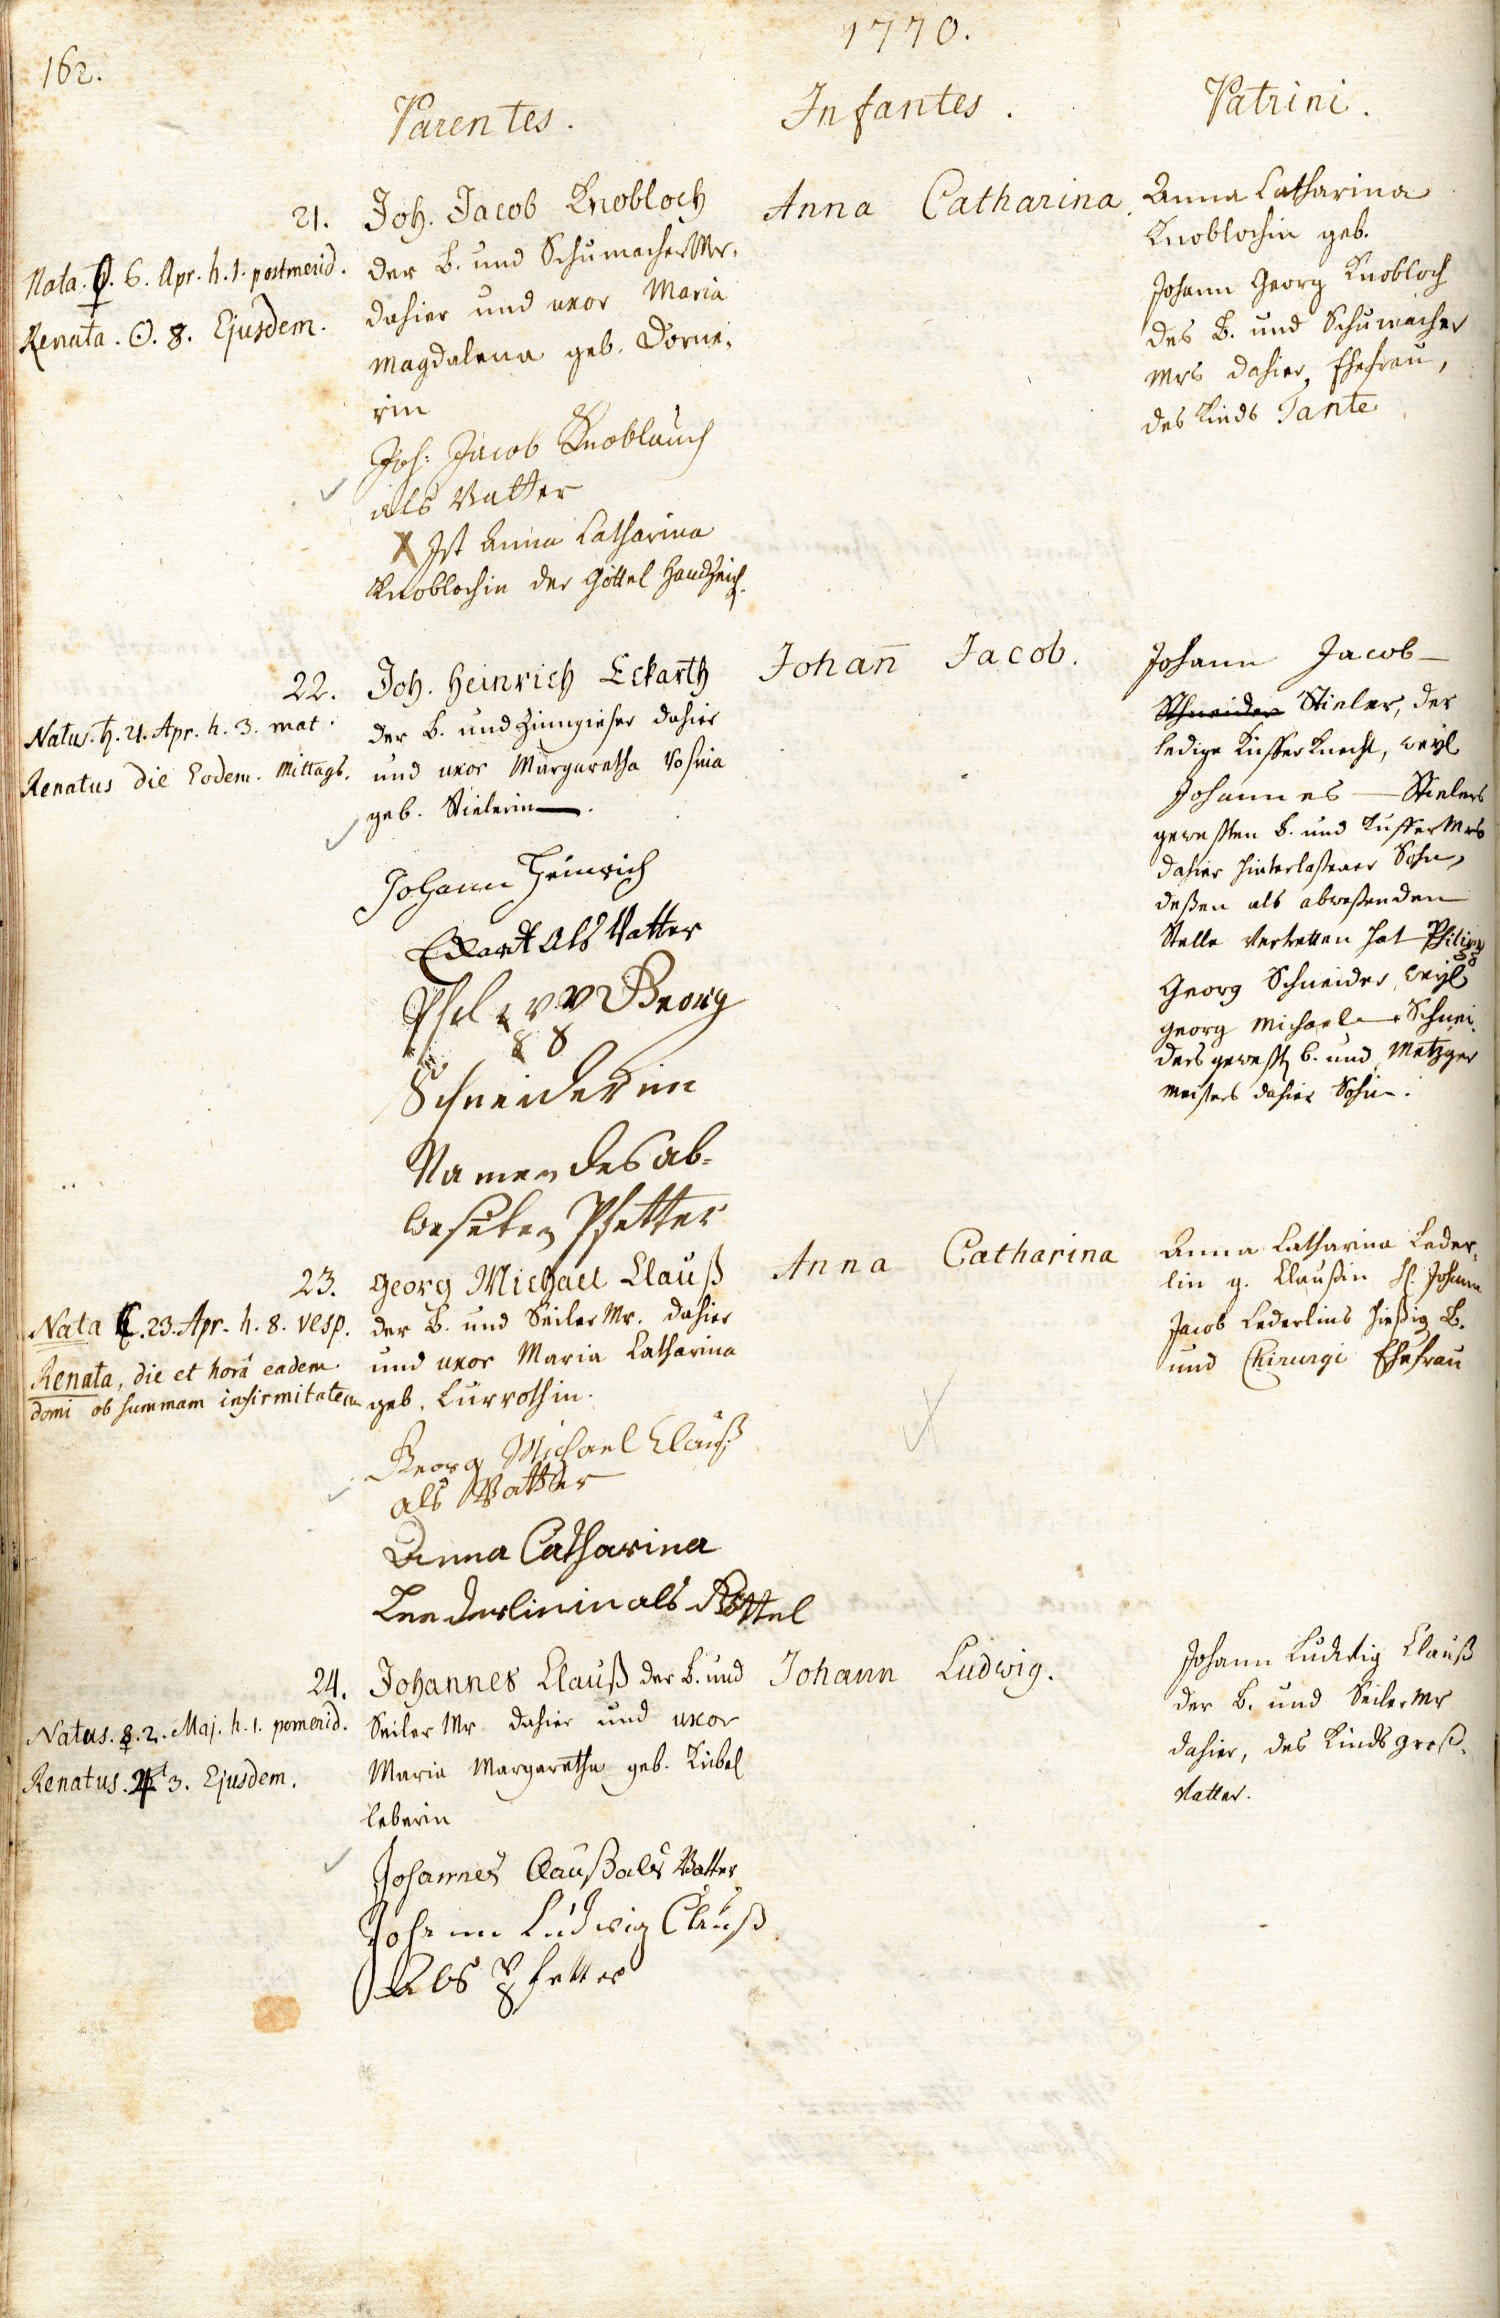 162.
1770.
Parentes.
Infantes.
Patrini.
21.
Nata. ♀. 6. Apr. h. 1. postmerid.
Renata. ☉. 8. Ejusdem.
Joh. Jacob Knobloch
der B. und Schumacher Mr.
dahier und uxor Maria
Magdalena geb. Dorne,
rin
Joh: Jacob Knoblauch
als Vatter
X Ist Anna Catharina
Knoblochin der Göttel Handzeich.
Anna Catharina
Anna Catharina
Knoblochin geb.
Johann Georg Knobloch
des B. und Schumacher
Mrs dahier, Ehefrau,
des Kinds Tante
22.
Natus. ♄. 21. Apr. h. 3. mat.
Renatus die Eodem. Mittags.
Joh. Heinrich Eckarth
der B. und Zinngieser dahier
und uxor Margaretha
geb. Stielerin.
Johann Heinrich
Eckart als Vatter
Georg
Schneider im
Namen des ab-
Pfetter
Johan̅ Jacob.
Johann Jacob
Schneider Stieler, der
ledige Kuffer Knecht, weyl
Johannes Stielers
gewesten B. und Kuffer Mrs
dahier hinterlaßener Sohn,
deßen als abweßenden
Stelle vertretten hat Philipp
Georg Schneider, weyl
Georg Michael Schnei,
ders gewest B. und Metzger
meisters dahier Sohn.
23.
Nata ☾. 23. Apr. h. 8. vesp.
Renata, die et horâ eadem
domi ob summam infirmitatem
Georg Michael Clauß
der B. und Seiler Mr. dahier
und uxor Maria Catharina
geb. Currothin.
Georg Michael Clauß
als Vatter
Anna Catharina
Leederlinin als Göttel
Anna Catharina
Anna Catharina Leder,
lin g. Claußin H. Johann
Jacob Lederlins hießig B.
und Chirurgi Ehefrau
24.
Natus. ☿. 2. Maj. h. 1. pomerid.
Renatus. ♃ 3. Ejusdem.
Johannes Clauß der B. und
Seiler Mr dahier und uxor
Maria Margaretha geb. Kübel
leberin
Johannes Clauß als Vatter
Johann Ludwig Clauß
Als Pfetter
Johann Ludwig.
Johann Ludwig Clauß
der B. und Seiler Mr
dahier, des Kinds Groß-
vatter.